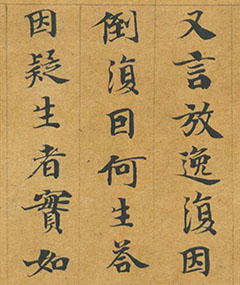 又言放逸復因
倒復回何生答
因疑生者實如